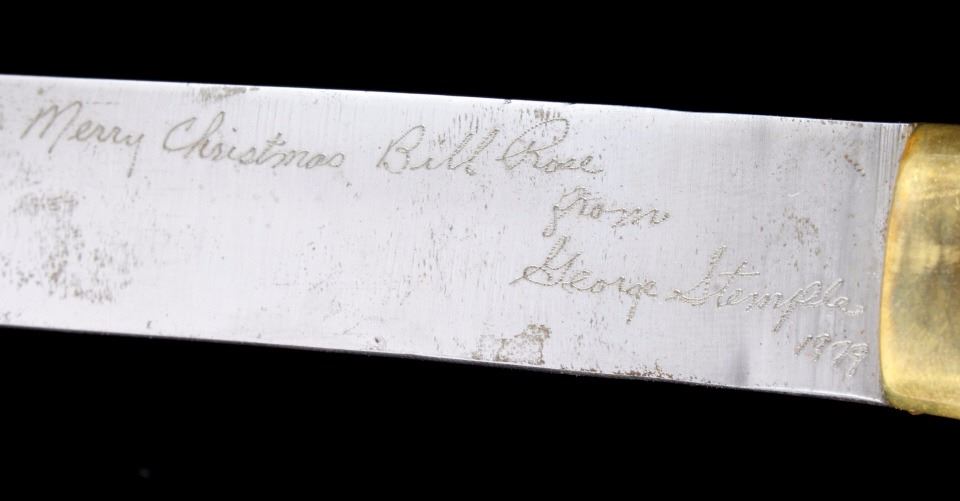 Merry Christmas Bill Rose
from
George Stemples
1979